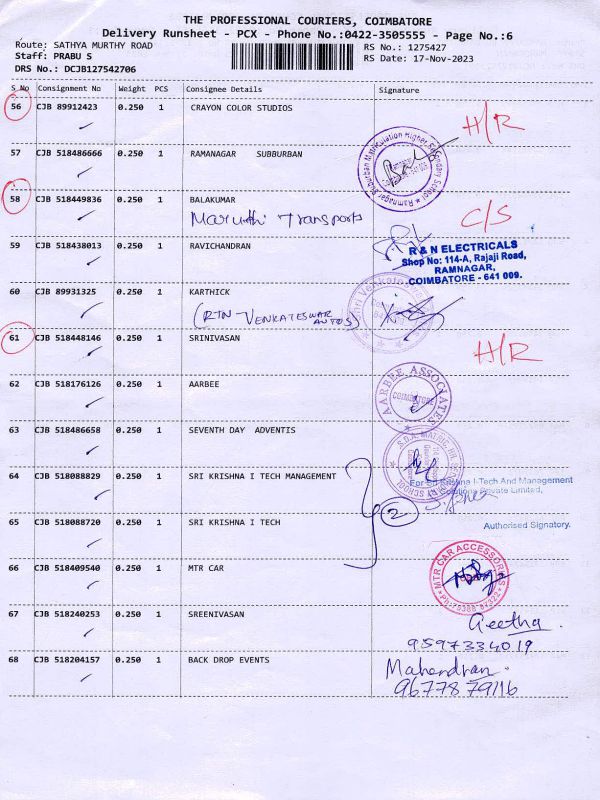 THE PROFESSIONAL COURIERS, COIMBATORE
Delivery Runsheet - PCX - Phone No.:0422-3505555 - Page No.:6
Route: SATHYA MURTHY ROAD
RS No.: 1275427
Staff: PRABU S
RS Date: 17-Nov-2023
DRS No.: DCJB127542706
S No Consignment No Weight PCS Consignee Details Signature
56 CJB 89912423 0.250 1 CRAYON COLOR STUDIOS
H/R
57 CJB 518486666 0.250 1 RAMANAGAR SUBBURBAN
Ramnagar Suburban Matriculation Higher Secondary School
58 CJB 518449836 0.250 1 BALAKUMAR
Maruthi Transports
C/S
59 CJB 518438013 0.250 1 RAVICHANDRAN
R & N ELECTRICALS
Shop No: 114-A, Rajaji Road,
RAMNAGAR,
COIMBATORE - 641 009.
60 CJB 89931325 0.250 1 KARTHICK
(RTN VENKATESWAR
AUTOS)
61 CJB 518448146 0.250 1 SRINIVASAN
H/R
62 CJB 518176126 0.250 1 AARBEE
AARBEE ASSOCIATES
COIMBATORE
63 CJB 518486658 0.250 1 SEVENTH DAY ADVENTIS
S.D.A. MATRIC. HR. SEC. SCHOOL
64 CJB 518088829 0.250 1 SRI KRISHNA I TECH MANAGEMENT
For Sri Krishna I-Tech And Management
Solutions Private Limited,
2
65 CJB 518088720 0.250 1 SRI KRISHNA I TECH
Authorised Signatory.
66 CJB 518409540 0.250 1 MTR CAR
MTR CAR ACCESSORIES
67 CJB 518240253 0.250 1 SREENIVASAN
Geetha.
9597334019
68 CJB 518204157 0.250 1 BACK DROP EVENTS
Mahendran.
9677879116